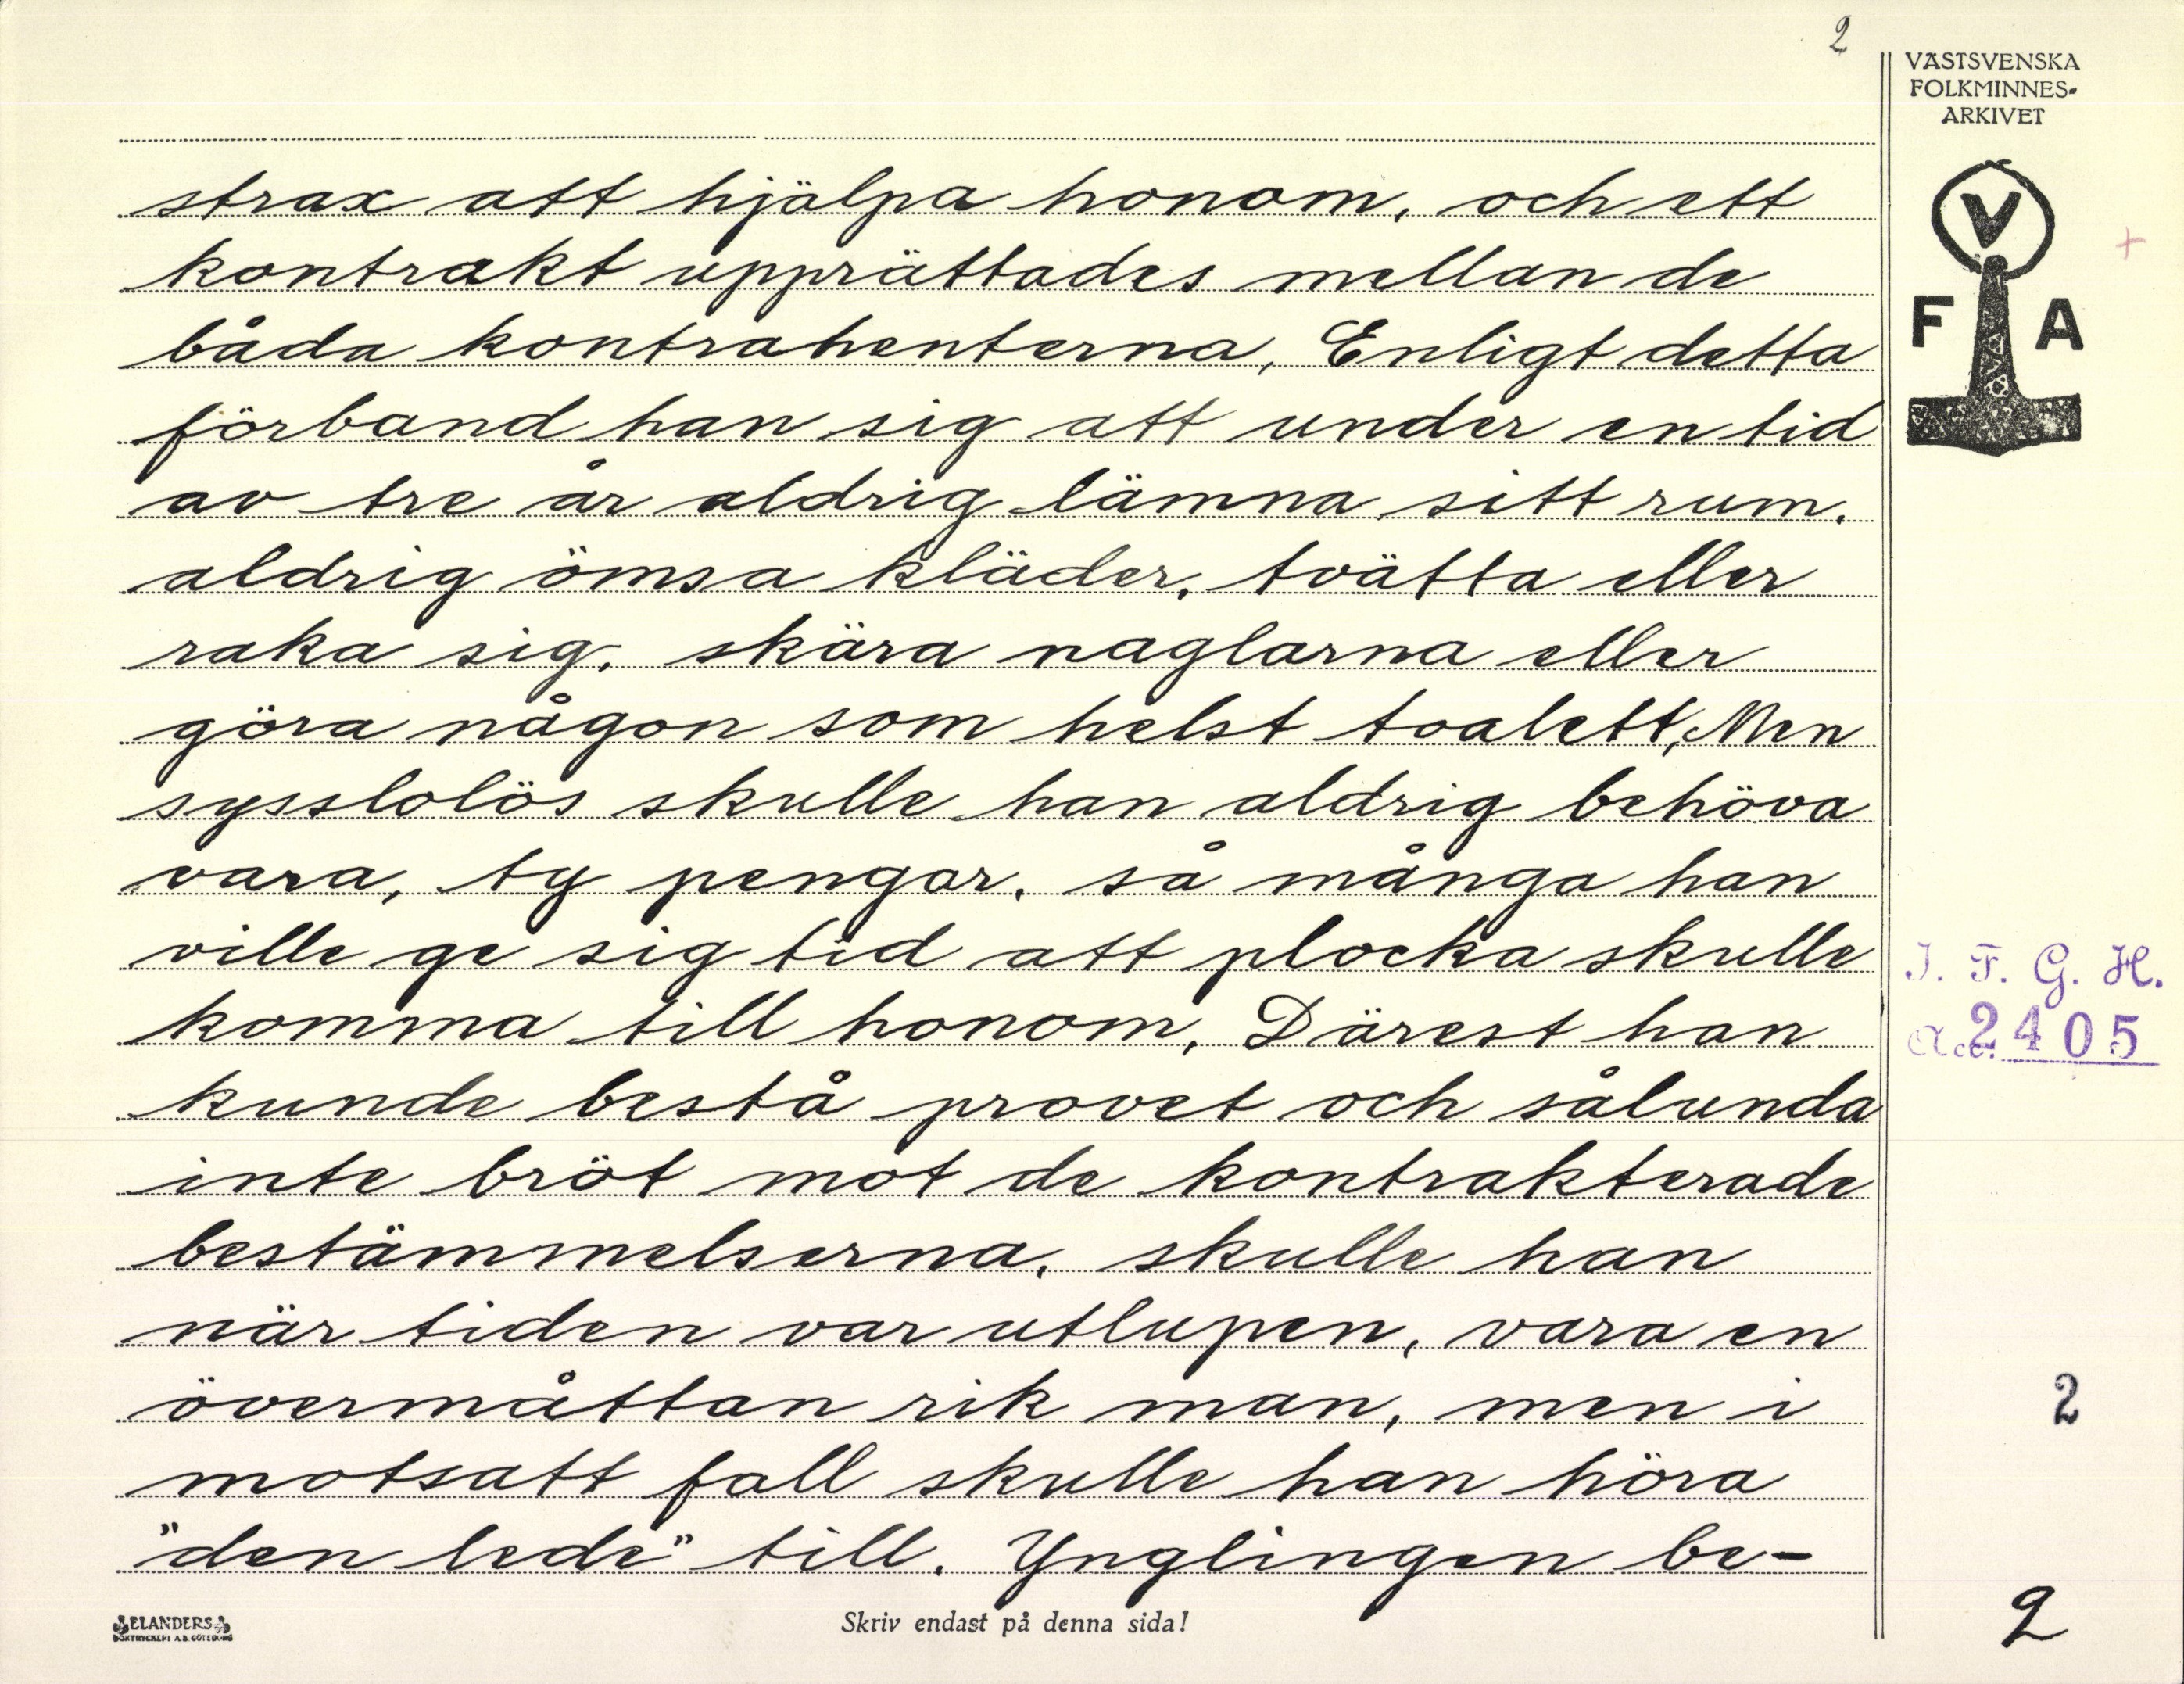 2
VÄSTSVENSKA
FOLKMINNES-
ARKIVET
V
F A
strax att hjälpa honom, och ett
kontrakt upprättades mellan de
båda kontrahenterna, Enligt detta
förband han sig att under en tid
av tre år aldrig lämna sitt rum,
aldrig ömsa kläder, tvätta eller
raka sig, skära naglarna eller
göra någon som helst toalett, Men
sysslolös skulle han aldrig behöva
vara, ty pengar, så många han
ville ge sig tid att plocka skulle
komma till honom, Därest han
kunde bestå provet och sålunda
inte bröt mot de kontrakterade
bestämmelserna, skulle han
när tiden var utlupen, vara en
övermåttan rik man, men i
motsatt fall skulle han höra
"den lede" till. Ynglingen be-
I. F. G. H.
Acc. 2405
2
2
ELANDERS
BOKTRYCKERI A.B. GÖTEBORG
Skriv endast på denna sida!